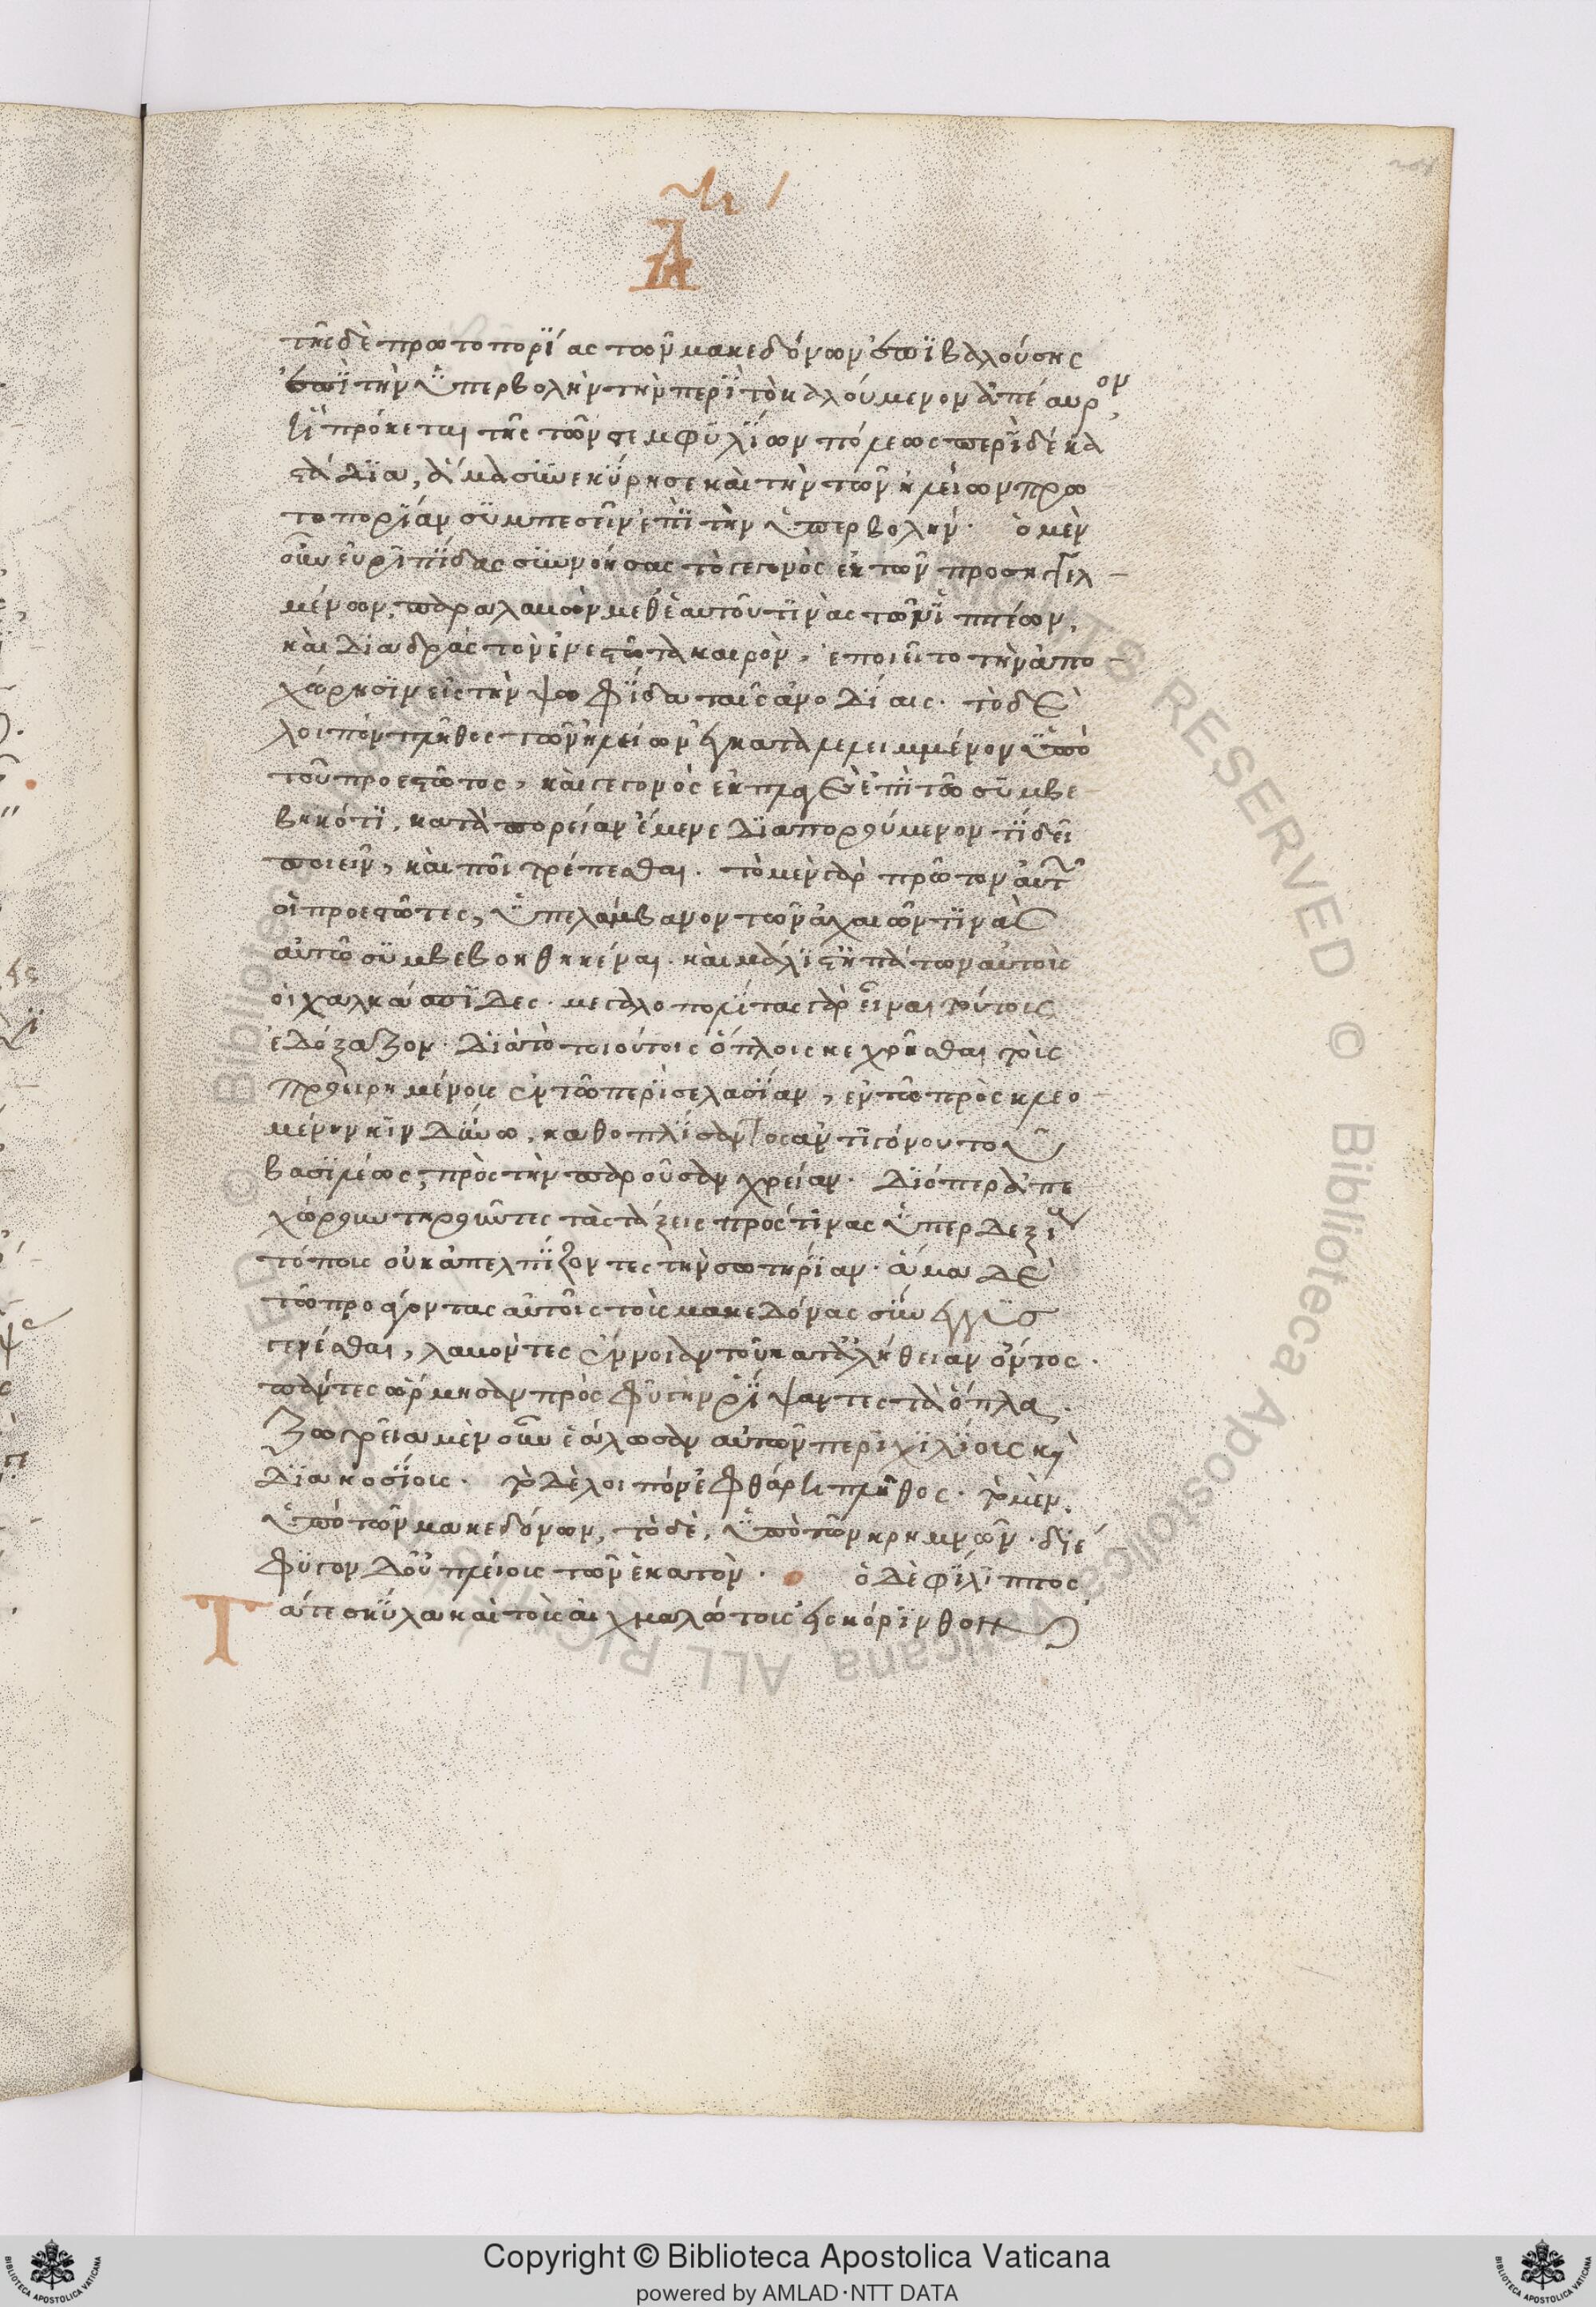 τῆς δὲ πρωτοπορίας τῶν μακεδόνων ἐπιβαλούσης
ἐπὶ τὴν ὑπερβολὴν τὴν περὶ τὸ καλούμενον ἀπέαυρον,
ἣ πρόκειται τῆς τῶν στεμφυλίων πόλεως περὶ δέκα
στάδια, ἅμα συνεκύρησε καὶ τὴν τῶν ἠλείων πρω
τοπορίαν συμπεσεῖν ἐπὶ τὴν ὑπερβολήν. ὁ μὲν
οὖν εὐριπίδας συννοήσας τὸ γεγονὸς ἐκ τῶν προσηγγελ
μένων, παραλαβὼν μεθ' ἑαυτοῦ τινὰς τῶν ἱππέων,
καὶ διαδρὰς τὸν ἐνεστῶτα καιρὸν, ἐποιεῖτο τὴν ἀπο
χώρησιν εἰς τὴν ψωφίδα ταῖς ἀνοδίαις. τὸ δὲ
λοιπὸν πλῆθος τῶν ἠλείων ἐγκαταλελειμμένον ὑπὸ
τοῦ προεστῶτος, καὶ γεγονὸς ἐκπλαγὲς ἐπὶ τῷ συμβε
βηκότι, κατὰ πορείαν ἔμενε διαπορούμενον τί δεῖ
ποιεῖν, καὶ ποῖ τρέπεσθαι. τὸ μὲν γὰρ πρῶτον αὐτῶν
οἱ προεστῶτες, ὑπελάμβανον τῶν ἀχαιῶν τινὰς
αὐτῷ συμβεβοηθηκέναι. καὶ μάλιστ' ἠπάτων αὐτοὺς
οἱ χαλκάσπιδες. μεγαλοπολίτας γὰρ εἶναι τούτους
ἐδόξαζον. διὰ τὸ τοιούτοις ὅπλοις κεχρῆσθαι τοὺς
προειρημένους ἐν τῷ περὶ σελασίαν, ἐν τῷ πρὸς κλεο
μένην κινδύνω, καθοπλίσαντος ἀντιγόνου τοῦ
βασιλέως, πρὸς τὴν παροῦσαν χρείαν. διόπερ ἀπε
χώρουν τηροῦντες τὰς τάξεις πρός τινας ὑπερδεξίους
τόπους οὐκ ἀπελπίζοντες τὴν σωτηρίαν. ἅμα δὲ
τῶ προσάγοντας αὐτοῖς τοὺς μακεδόνας σύνεγγυς
γενέσθαι, λαβόντες ἔννοιαν τοῦ κατ' ἀλήθειαν ὄντος.
πάντες ὥρμησαν πρὸς φυγὴν ῥίψαντες τὰ ὅπλα.
ζωγρεία μὲν οὖν ἑάλωσαν αὐτῶν περὶ χιλίους καὶ
διακοσίους. τὸ δὲ λοιπὸν ἐφθάρη πλῆθος. τὸ μὲν
ὑπὸ τῶν μακεδόνων, τὸ δὲ, ὑπὸ τῶν κρημνῶν. διέ
φυγον δ' οὐ πλείους τῶν ἑκατόν. ὁ δὲ φίλιππος
τά τε σκῦλα καὶ τοὺς αἰχμαλώτους εἰς κόρινθον